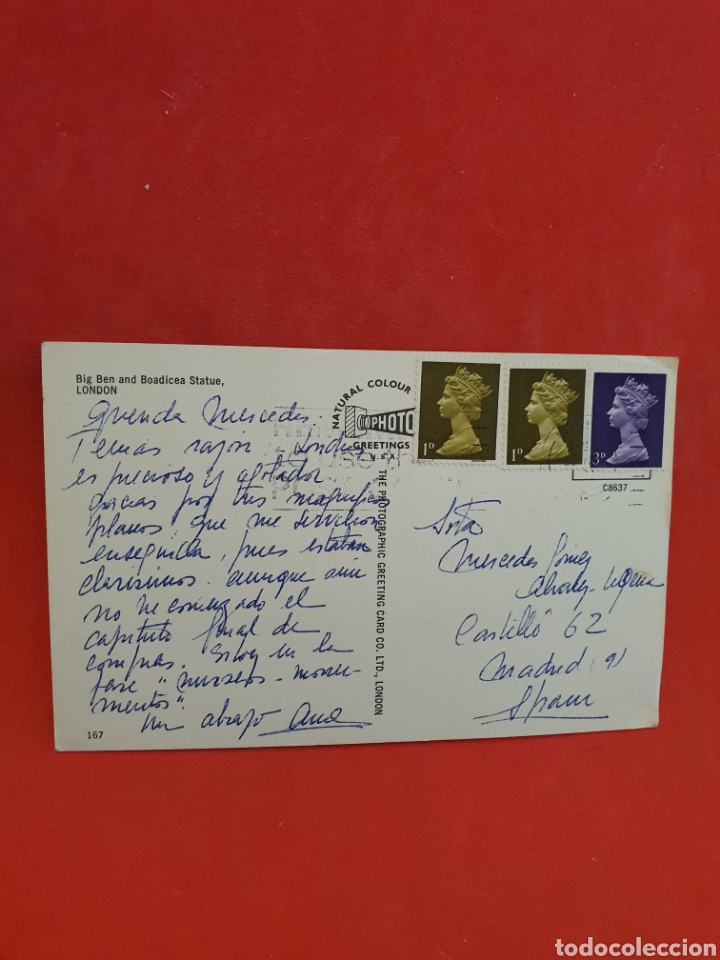 Big Ben and Boadicea Statue,
LONDON
Querida Mercedes.
Tenias razon Londres
es precioso y agotador
gracias por tus magnificos
planos, que me sirvieron
enseguida, pues estaban
clarisimos. aunque aun
no he comenzado el
capitulo final de
compras. Estoy en la
fase "museos - monu-
mentos".
un abrazo Ana
167
NATURAL COLOUR
PHOTO
GREETINGS
U.S.A.
THE PHOTOGRAPHIC GREETING CARD CO. LTD., LONDON
1D
1D
3D
C8637
Srta
Mercedes Gomez
Castelló 62
Madrid (
Spain
todocoleccion